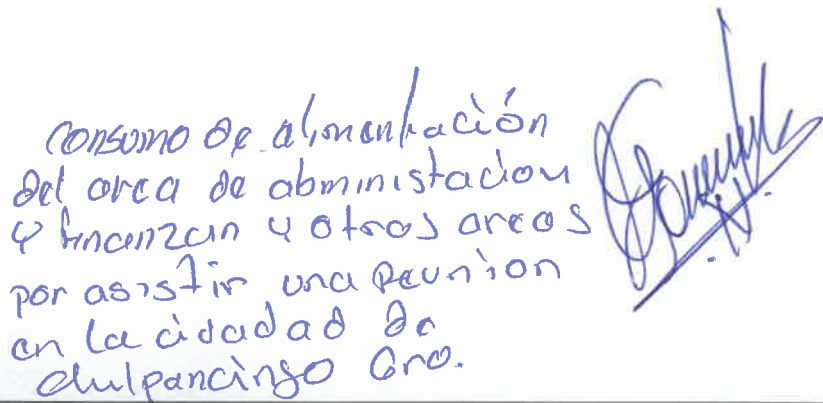 consumo de alimentación
del area de abministacion
y finanzan y otros areas
por asistir una Reunion
en la cidadad de
chilpancingo Gro.